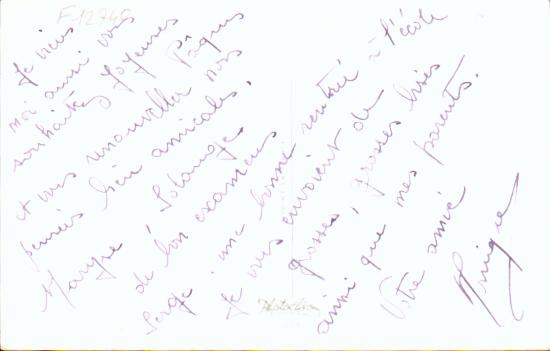 F12740
Je viens
moi aussi vous
souhaiter Joyeuses
Pâques
et vous renouveller nos
pensées bien amicales.
Maryse, Solange
de bon examens
Serge : une bonne rentrée à l'école
Je vous envoient de
grosses, grosses bises
ainsi que mes parents.
Votre amie